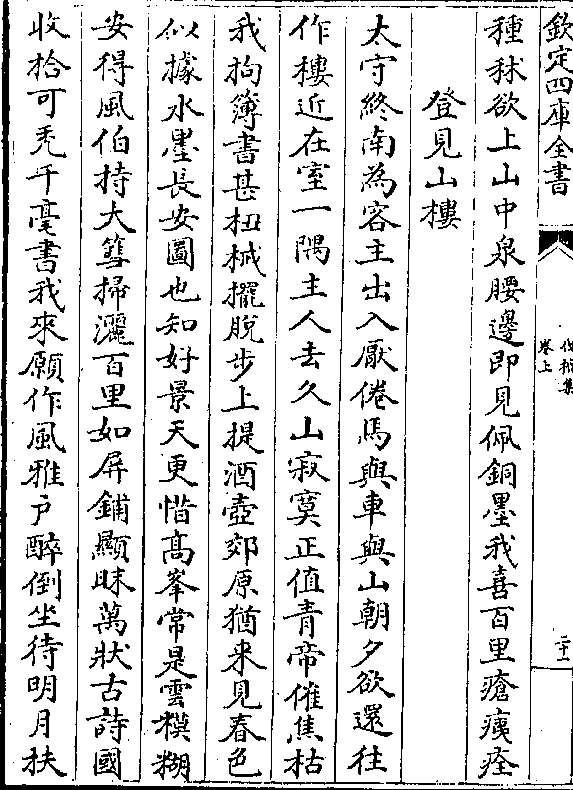 欽定四庫全書
卷上
種秫欲上山中泉腰邊即見佩銅墨我喜百里瘡痍痊
登見山樓
太守終南為客主出入厭倦馬與車與山朝夕欲還往
作樓近在室一隅主人去久山寂寞正值青帝催焦枯
我拘簿書甚杻械擺脱步上提酒壺郊原猶未見春色
似據水墨長安圖也知好景天更惜髙峯常是雲模糊
安得風伯持大篲掃灑百里如屏鋪顯昧萬狀古詩國
收拾可秃千毫書我來願作風雅户醉倒坐待明月扶